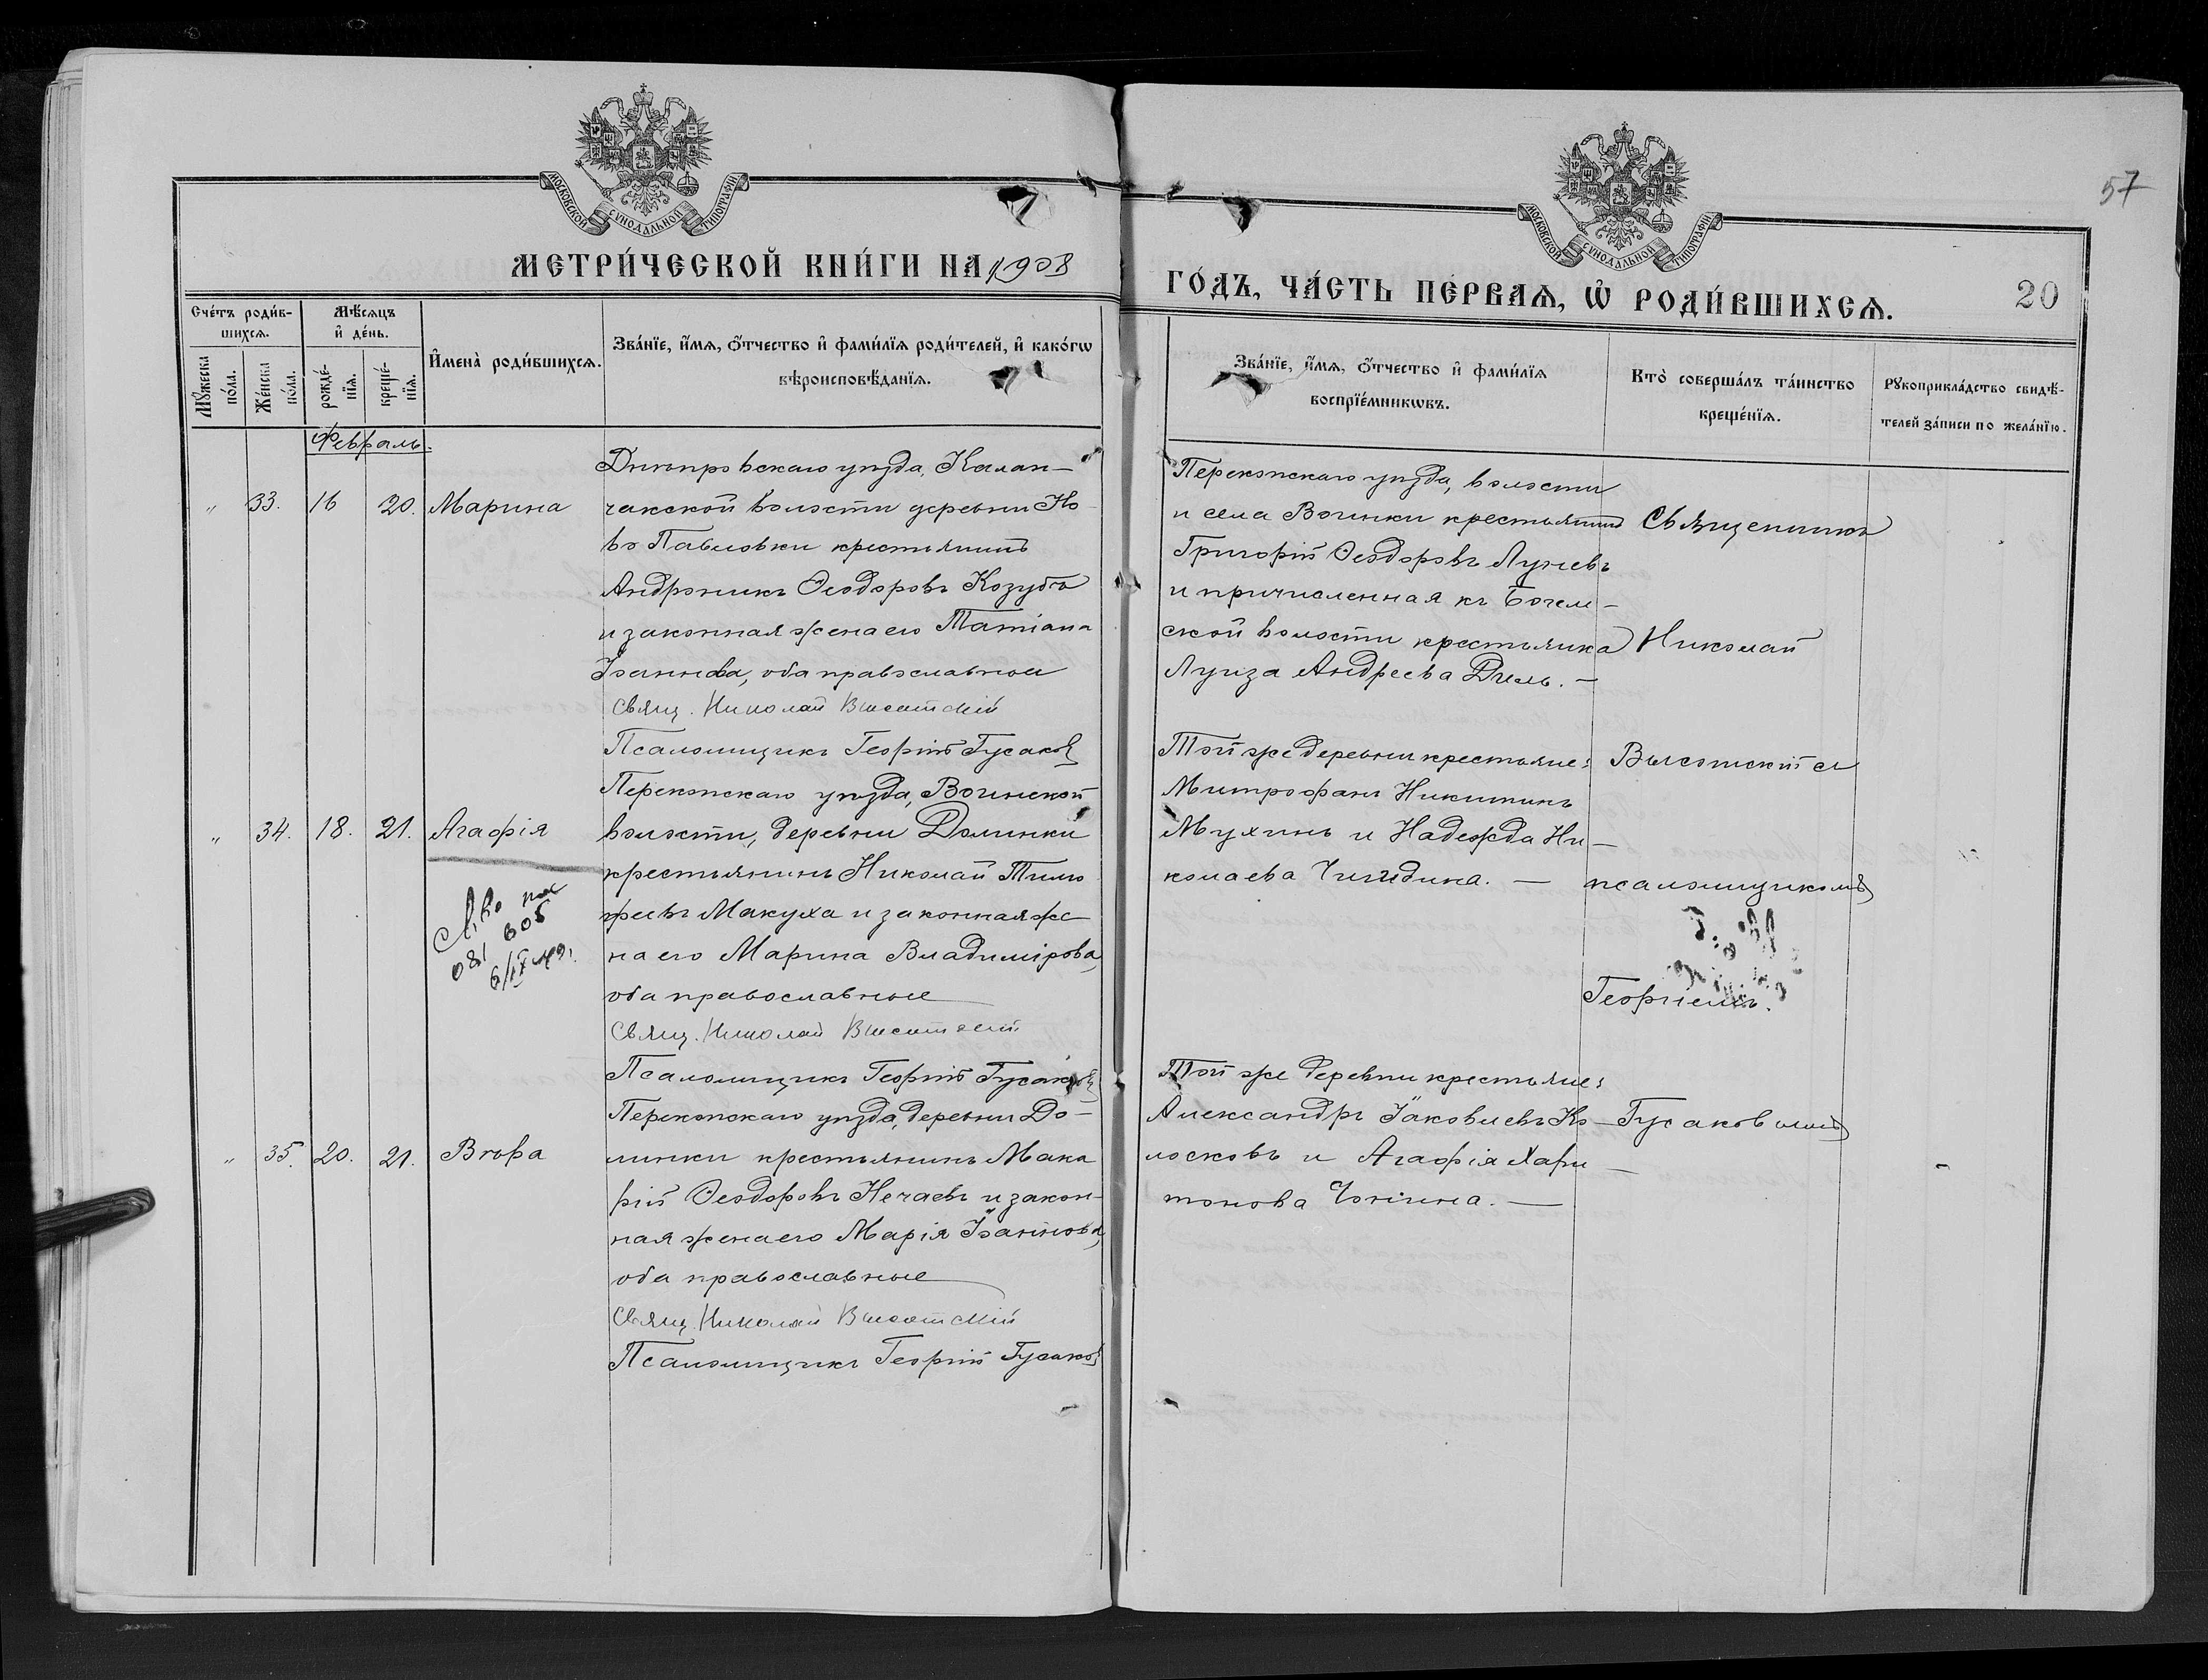 57
МОСКОВСКОЙ СѴНОДАЛЬНОЙ ТИПОГРАФІИ
МОСКОВСКОЙ СѴНОДАЛЬНОЙ ТИПОГРАФІИ
МЕТРИ́ЧЕСКОЙ КНИ́ГИ НА 1908
ГО́ДЪ, ЧА́СТЬ ПЕ́РВАѦ, Ѡ҆ РОДИ́ВШИХСѦ.
20
Сче́тъ роди́в-
шихсѧ.
Мꙋ́жеска
по́ла.
Же́нска
по́ла.
Мѣ́сѧцъ
и҆ де́нь.
рожде́-
нїѧ.
креще́-
нїѧ.
И҆мена̀ роди́вшихсѧ.
Зва́нїе, и҆́мѧ, ѻ҆́тчество и҆ фами́лїѧ роди́телей, и҆ како́гѡ
вѣроисповѣ́данїѧ.
Зва́нїе, и҆́мѧ, ѻ҆́тчество и҆ фами́лїѧ
воспрїе́мникѡвъ.
Кто̀ соверша́лъ та́инство
креще́нїѧ.
Рꙋкоприкла́дство свидѣ́-
телей за́писи по жела́нїю.
Февраль.
" 33. 16 20. Марина
Днѣпровскаго уѣзда, Калан-
чакской волости деревни Но-
во Павловки крестьянинъ
Андроникъ Ѳеодоровъ Козубъ
и законная жена его Татіана
Іоаннова, оба православные
Свящ. Николай Высотскій
Псаломщикъ Георгій Гусаковъ
Перекопскаго уѣзда, волости
и села Воинки крестьянинъ
Григорій Ѳеодоровъ Лунев
и причисленная къ Богем-
ской волости крестьянка
Луиза Андреева Диль. —
Священникъ
Николай
Высотскій съ
псаломщикомъ
Георгіемъ
Гусаковымъ
" 34. 18. 21. Агафія
Св-во
081 605
Перекопскаго уѣзда, Воинской
волости, деревни Долинки
крестьянинъ Николай Тимо
феевъ Макуха и законная же
на его Марина Владимірова,
оба православные
Свящ. Николай Высотскій
Псаломщикъ Георгій Гусаковъ
Той же деревни крестьяне:
Митрофанъ Никитинъ
Мухинъ и Надежда Ни-
колаева —
" 35. 20. 21. Вѣра
Перекопскаго уѣзда, деревни До-
линки крестьянинъ Мака
рій Ѳеодоровъ Нечаевъ и закон-
ная жена его Марія Іоаннова,
оба православные
Свящ. Николай Высотскій
Псаломщикъ Георгій Гусаковъ
Той же деревни крестьяне:
Александръ Іаковлевъ Ко-
лосковъ и Агафія Хари-
тонова —